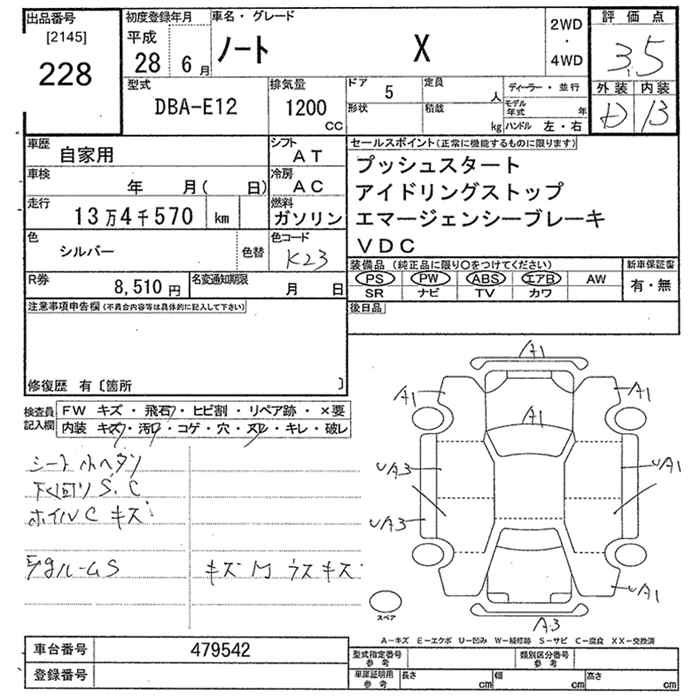 出品番号
[2145]
228
初度登録年月
平成
28年 6月
車名・グレード
ノート X
2WD
・
4WD
評価点
3.5
外装 内装
D B
型式
DBA-E12
排気量
1200
CC
ドア 5
定員 人
形状
積載 kg
ディーラー・並行
モデル年式 年
ハンドル 左・右
車歴 自家用
シフト AT
車検 年 月( 日)
冷房 AC
走行 13万4千570 km
燃料 ガソリン
色 シルバー
色替
色コード K23
R券 8,510円
名変通知期限 月 日
セールスポイント(正常に機能するものに限ります)
プッシュスタート
アイドリングストップ
エマージェンシーブレーキ
VDC
装備品(純正品に限り○をつけてください)
新車保証書
PS PW ABS エアB AW
有・無
SR ナビ TV カワ
後日品
注意事項申告欄(不具合内容等は具体的に記入して下さい)
修復歴 有〔箇所 〕
検査員記入欄
FW キズ・飛石・ヒビ割・リペア跡・×要
内装 キズ・汚・コゲ・穴・スレ・キレ・破レ
シート小ヘタリ
下回りS.C
ホイルC キズ
ルームS
キズ M ウスキズ
A1
A1
A1
A1
UA3
UA1
UA3
UA1
A3
スペア
A-キズ E-エクボ U-凹み W-補修跡 S-サビ C-腐食 XX-交換済
車台番号 479542
登録番号
型式指定番号 参考
類別区分番号 参考
車庫証明用 参考
長さ cm
幅 cm
高さ cm